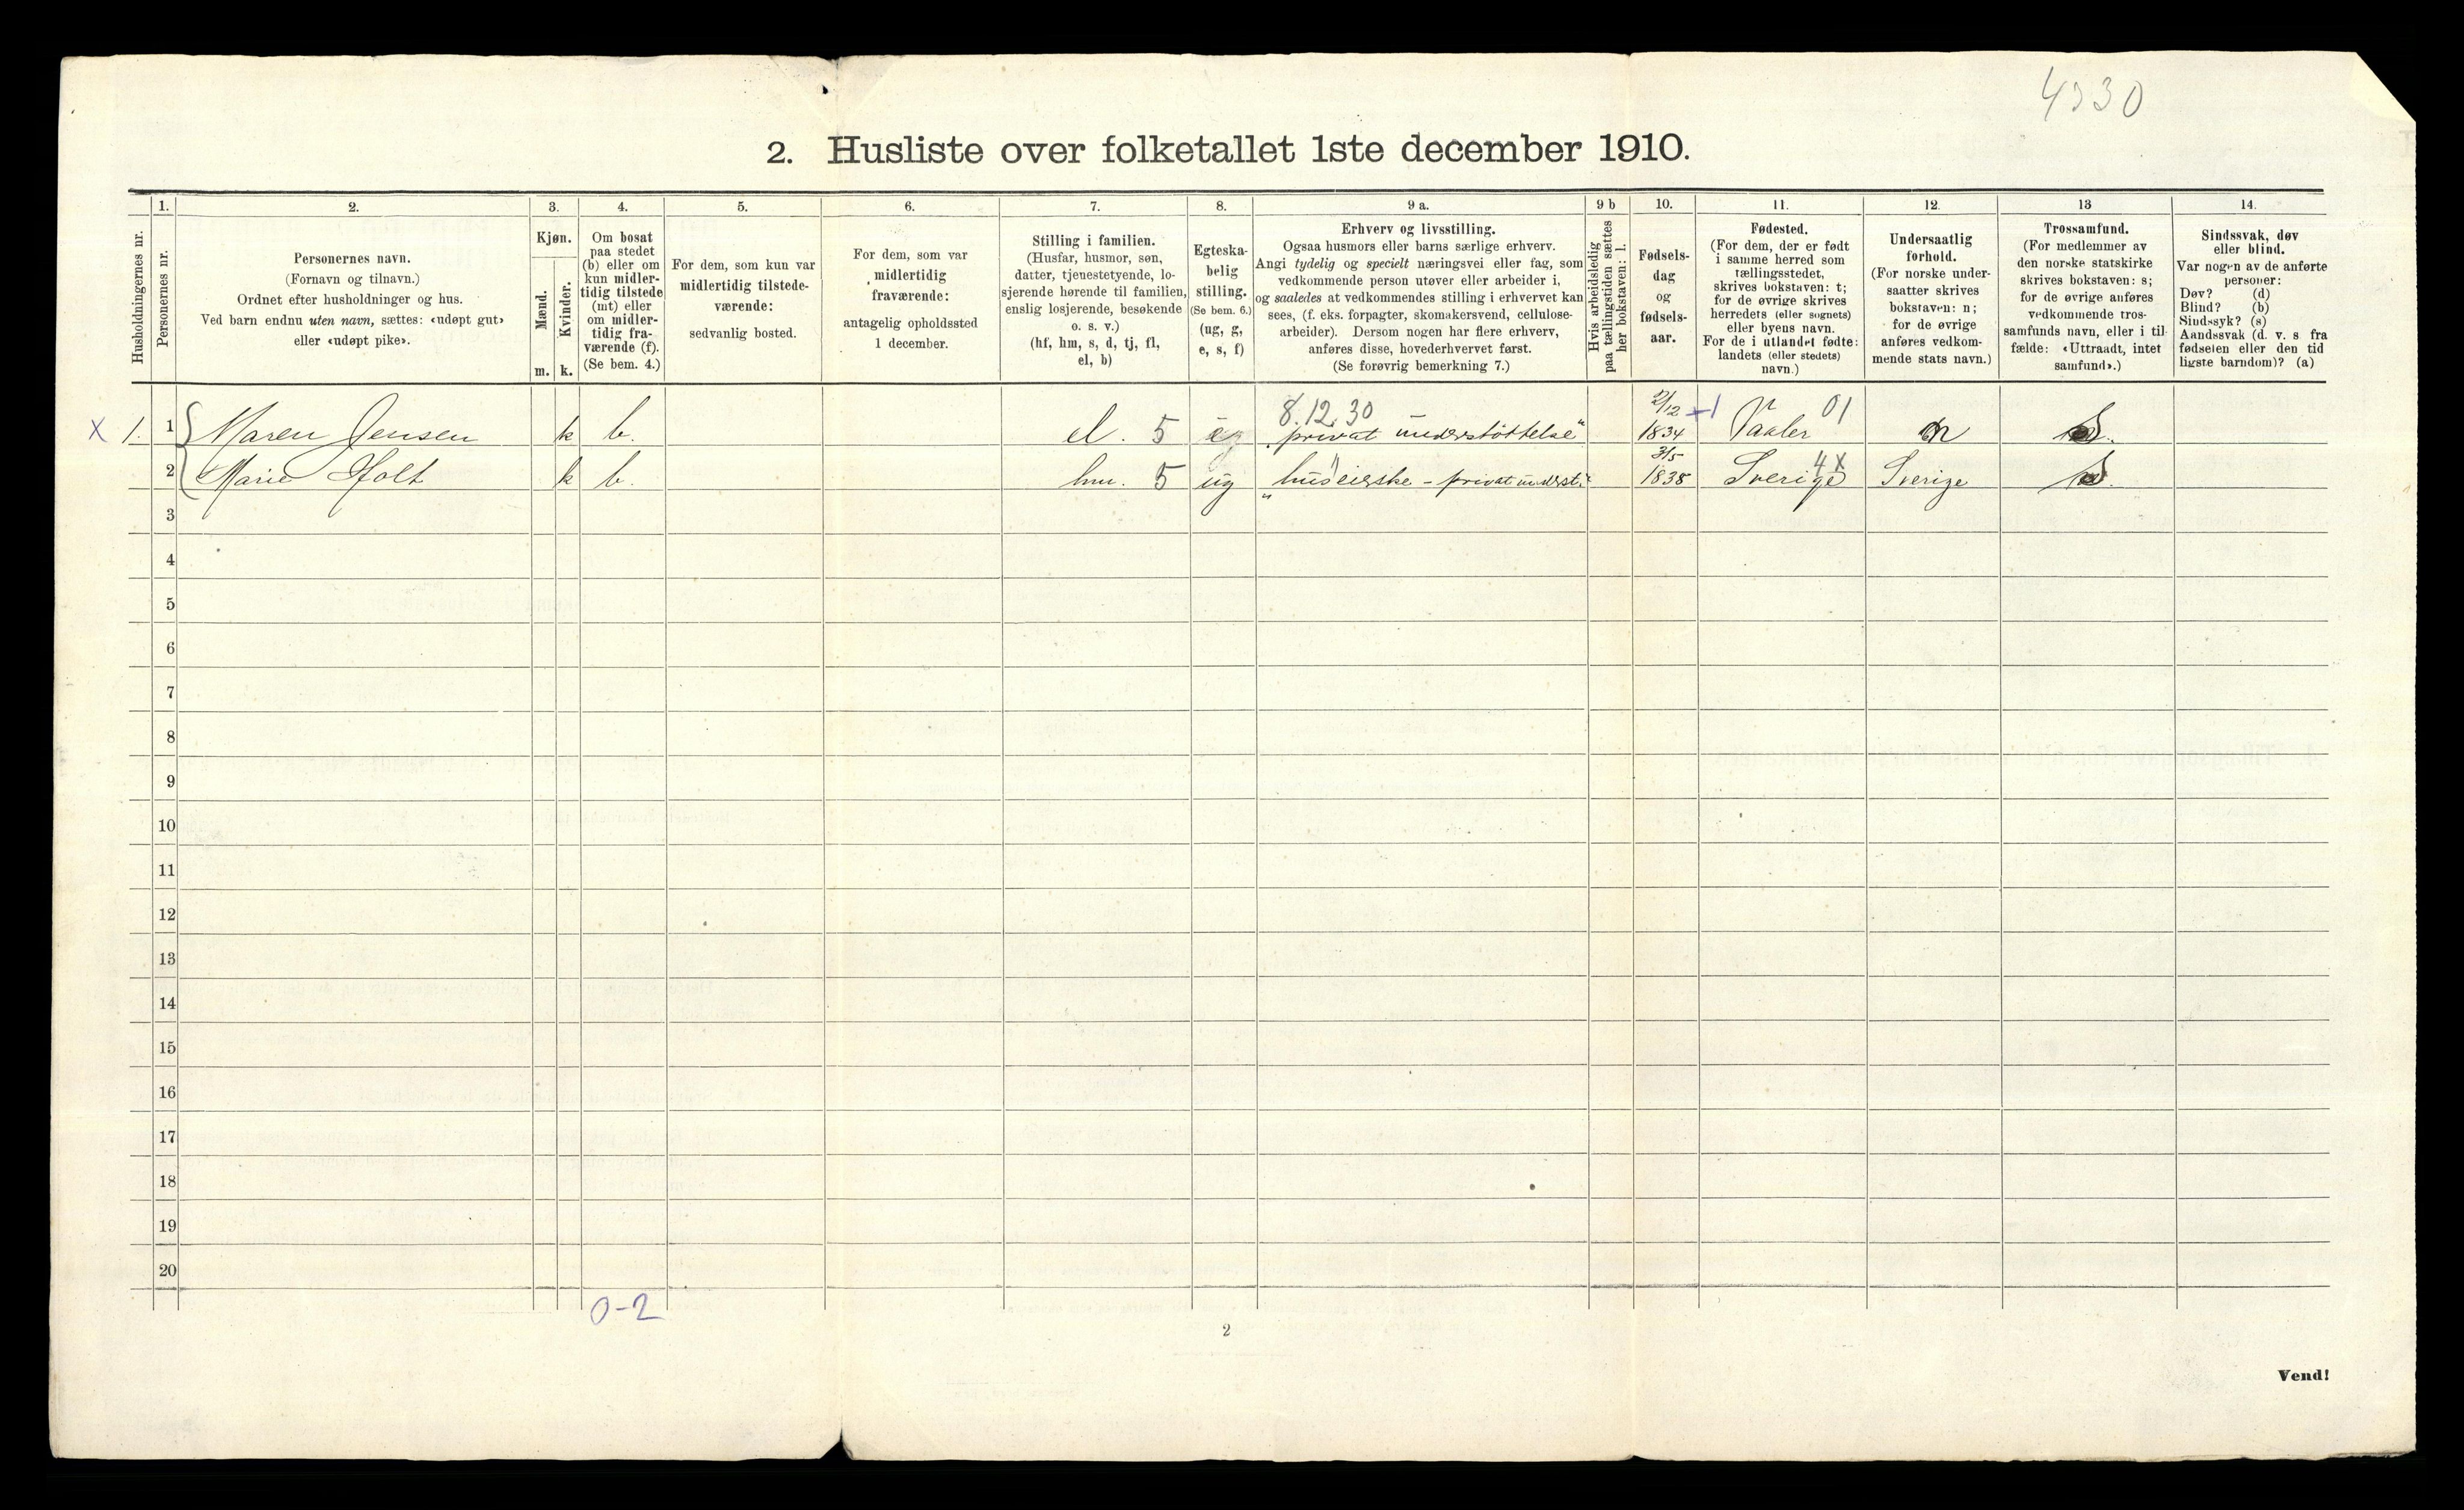 4330
2. Husliste over folketallet 1ste december 1910.
Husholdningernes nr.
1.
Personernes nr.
2.
Personernes navn.
(Fornavn og tilnavn.)
Ordnet efter husholdninger og hus.
Ved barn endnu uten navn, sættes: «udøpt gut»
eller «udøpt pike».
3.
Kjøn.
Mænd.
Kvinder.
m.
k.
4.
Om bosat
paa stedet
(b) eller om
kun midler-
tidig tilstede
(mt) eller
om midler-
tidig fra-
værende (f).
(Se bem. 4.)
5.
For dem, som kun var
midlertidig tilstede-
værende:
sedvanlig bosted.
6.
For dem, som var
midlertidig
fraværende:
antagelig opholdssted
1 december.
7.
Stilling i familien.
(Husfar, husmor, søn,
datter, tjenestetyende, lo-
sjerende hørende til familien,
enslig losjerende, besøkende
o. s. v.)
(hf, hm, s, d, tj, fl,
el, b)
8.
Egteska-
belig
stilling.
(Se bem. 6.)
(ug, g,
e, s, f)
9 a.
Erhverv og livsstilling.
Ogsaa husmors eller barns særlige erhverv.
Angi tydelig og specielt næringsvei eller fag, som
vedkommende person utøver eller arbeider i,
og saaledes at vedkommendes stilling i erhvervet kan
sees, (f. eks. forpagter, skomakersvend, cellulose-
arbeider). Dersom nogen har flere erhverv,
anføres disse, hovederhvervet først.
(Se forøvrig bemerkning 7.)
9 b
Hvis arbeidsledig
paa tællingstiden sættes
her bokstaven: l.
10.
Fødsels-
dag
og
fødsels-
aar.
11.
Fødested.
(For dem, der er født
i samme herred som
tællingsstedet,
skrives bokstaven: t;
for de øvrige skrives
herredets (eller sognets)
eller byens navn.
For de i utlandet fødte:
landets (eller stedets)
navn.)
12.
Undersaatlig
forhold.
(For norske under-
saatter skrives
bokstaven: n;
for de øvrige
anføres vedkom-
mende stats navn.)
13
Trossamfund.
(For medlemmer av
den norske statskirke
skrives bokstaven: s;
for de øvrige anføres
vedkommende tros-
samfunds navn, eller i til-
fælde: «Uttraadt, intet
samfund».)
14.
Sindssvak, døv
eller blind.
Var nogen av de anførte
personer:
Døv? (d)
Blind? (b)
Sindssyk? (s)
Aandssvak (d. v. s fra
fødselen eller den tid
ligste barndom)? (a)
8.12.30 2/12 +1 01
X 1. 1 Maren Jensen k b. el. 5 "privat understøttelse" 1834 Vaaler n S.
3/5 4X
2 Marie Holt k b. hm. 5 ug "huseierske - privat underst." 1838 Sverige Sverige S.
3
4
5
6
7
8
9
10
11
12
13
14
15
16
17
18
19
20
0-2
2
Vend!